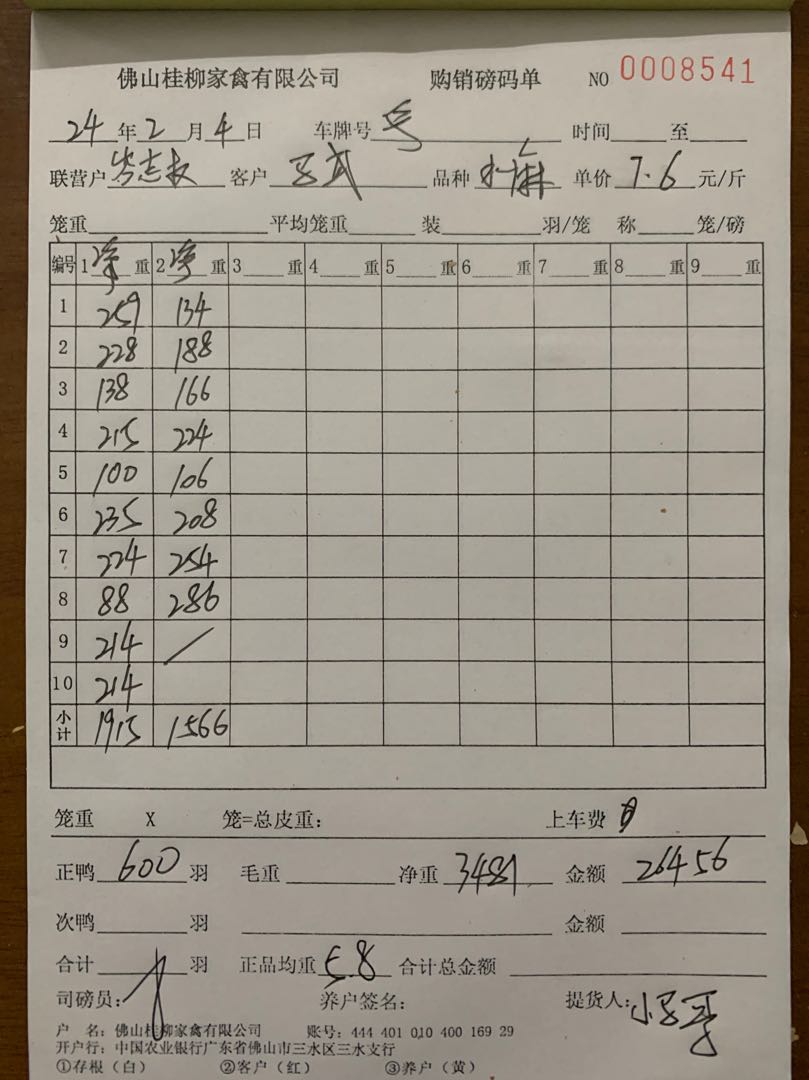 佛山桂柳家禽有限公司 购销磅码单 NO 0008541
24年2月4日 车牌号 时间 至
联营户 岑志权 客户 武 品种 麻 单价 7.6 元/斤
笼重 平均笼重 装 羽/笼 称 笼/磅
编号 1 净 重 2 净 重 3 重 4 重 5 重 6 重 7 重 8 重 9 重
1 259 134
2 228 188
3 138 166
4 215 224
5 100 106
6 235 208
7 224 254
8 88 286
9 214 /
10 214
小计 1915 1566
笼重 X 笼=总皮重: 上车费
正鸭 600 羽 毛重 净重 3481 金额 26456
次鸭 羽 金额
合计 羽 正品均重 5.8 合计总金额
司磅员: 养户签名: 提货人: 小
户 名: 佛山桂柳家禽有限公司 账号: 444 401 010 400 169 29
开户行: 中国农业银行广东省佛山市三水区三水支行
①存根(白) ②客户(红) ③养户(黄)